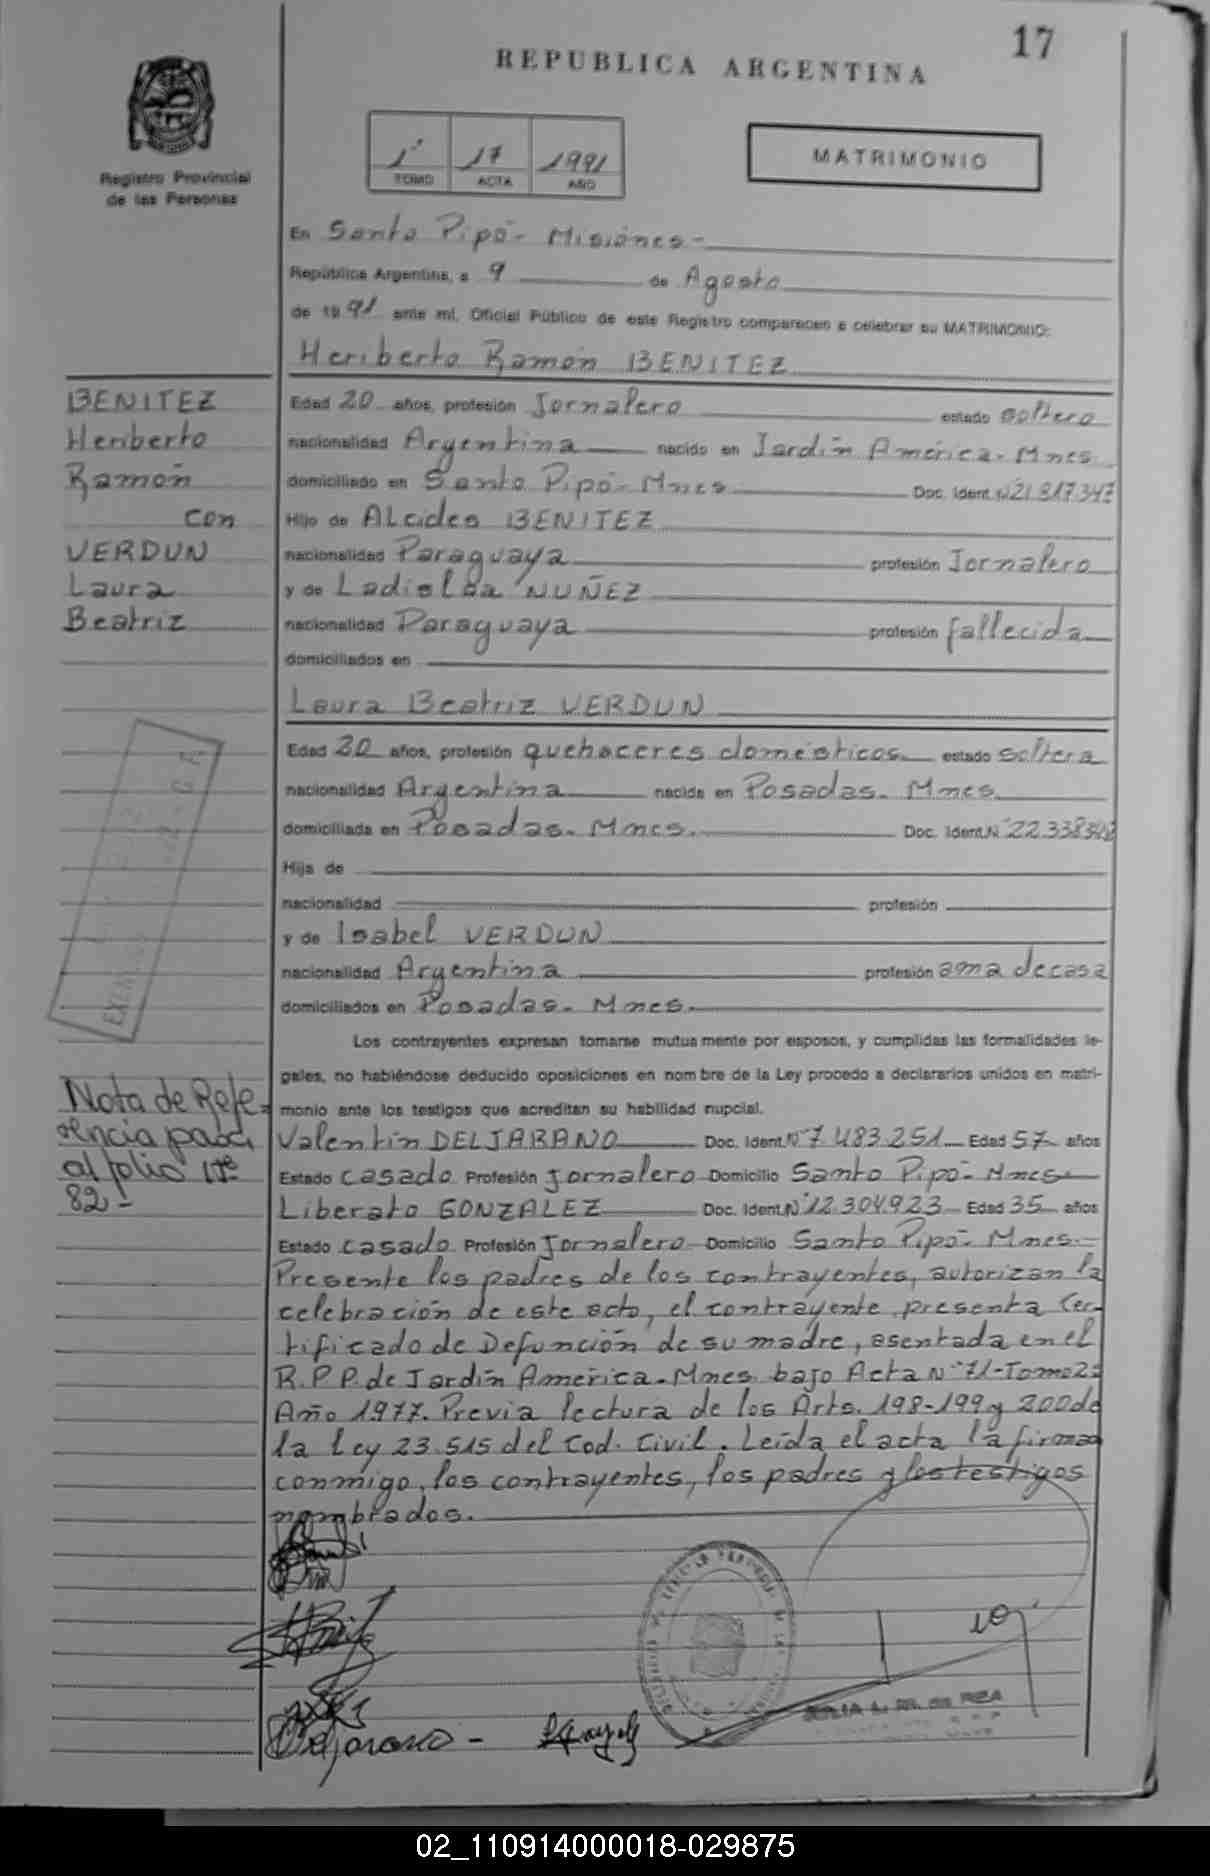 17
REPUBLICA ARGENTINA
Registro Provincial
de las Personas
1° 17 1991
TOMO ACTA AÑO
MATRIMONIO
En Santo Pipó - Misiones -
República Argentina, a 9 de Agosto
de 1991 ante mí, Oficial Público de este Registro comparecen a celebrar su MATRIMONIO:
Heriberto Ramón BENITEZ
BENITEZ
Heriberto
Ramón
con
VERDUN
Laura
Beatriz
Edad 20 años, profesión Jornalero estado soltero
nacionalidad Argentina nacido en Jardín América - Mnes.
domiciliado en Santo Pipó - Mnes Doc. Ident. N° 21.817.347
Hijo de Alcides BENITEZ
nacionalidad Paraguaya profesión Jornalero
y de Ladislaa NUÑEZ
nacionalidad Paraguaya profesión fallecida
domiciliados en
Laura Beatriz VERDUN
Edad 20 años, profesión quehaceres domésticos estado soltera
nacionalidad Argentina nacida en Posadas - Mnes
domiciliada en Posadas - Mnes. Doc. Ident. N° 22.338.
Hija de
nacionalidad profesión
y de Isabel VERDUN
nacionalidad Argentina profesión ama de casa
domiciliados en Posadas - Mnes.
Los contrayentes expresan tomarse mutuamente por esposos, y cumplidas las formalidades le-
gales, no habiéndose deducido oposiciones en nombre de la Ley procedo a declararlos unidos en matri-
monio ante los testigos que acreditan su habilidad nupcial.
Nota de Refe-
rencia pasa
al folio N°
82 -
Valentín DELJARANO Doc. Ident. N° 7.483.251 Edad 57 años
Estado casado Profesión Jornalero Domicilio Santo Pipó - Mnes
Liberato GONZALEZ Doc. Ident. N° 12.304.923 Edad 35 años
Estado casado Profesión Jornalero Domicilio Santo Pipó - Mnes. -
Presente los padres de los contrayentes, autorizan la
celebración de este acto, el contrayente presenta Cer-
tificado de Defunción de su madre, asentada en el
R.P.P. de Jardín América - Mnes. bajo Acta N° 71 - Tomo 2°
Año 1977. Previa lectura de los Arts. 198-199 y 200 de
la Ley 23.515 del Cod. Civil. Leída el acta la firman
conmigo, los contrayentes, los padres y los testigos
nombrados.
02_110914000018-029875